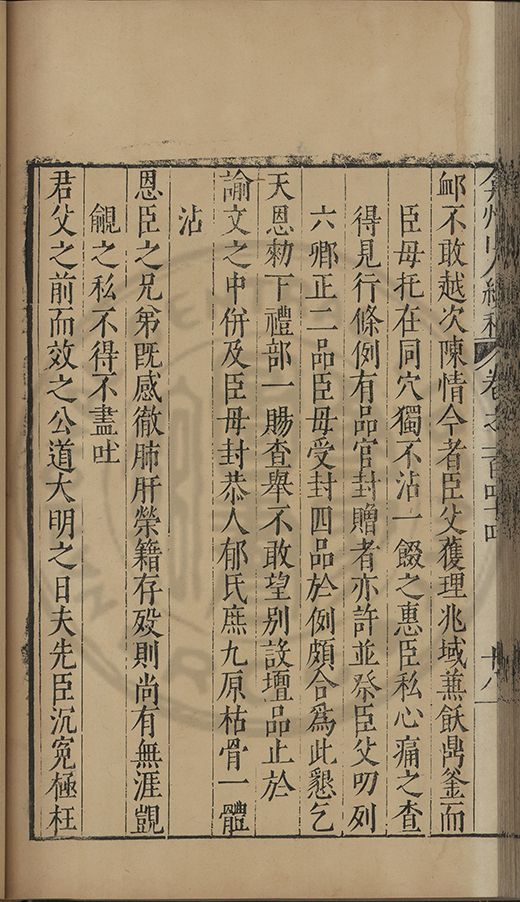 弇州山人續稿 卷之一百四十四 十八
䘏不敢越次陳情今者臣父獲理兆域兼飫鼎釜而
臣母托在同穴獨不沾一餟之惠臣私心痛之查
得見行條例有品官封贈者亦許並祭臣父叨列
六卿正二品臣母受封四品於例頗合爲此懇乞
天恩勑下禮部一賜查舉不敢望别設壇品止於
諭文之中併及臣母封恭人郁氏庶九原枯骨一體
沾
恩臣之兄弟既感徹肺肝榮籍存殁則尚有無涯覬
覦之私不得不盡吐
君父之前而效之公道大明之日夫先臣沉冤極枉